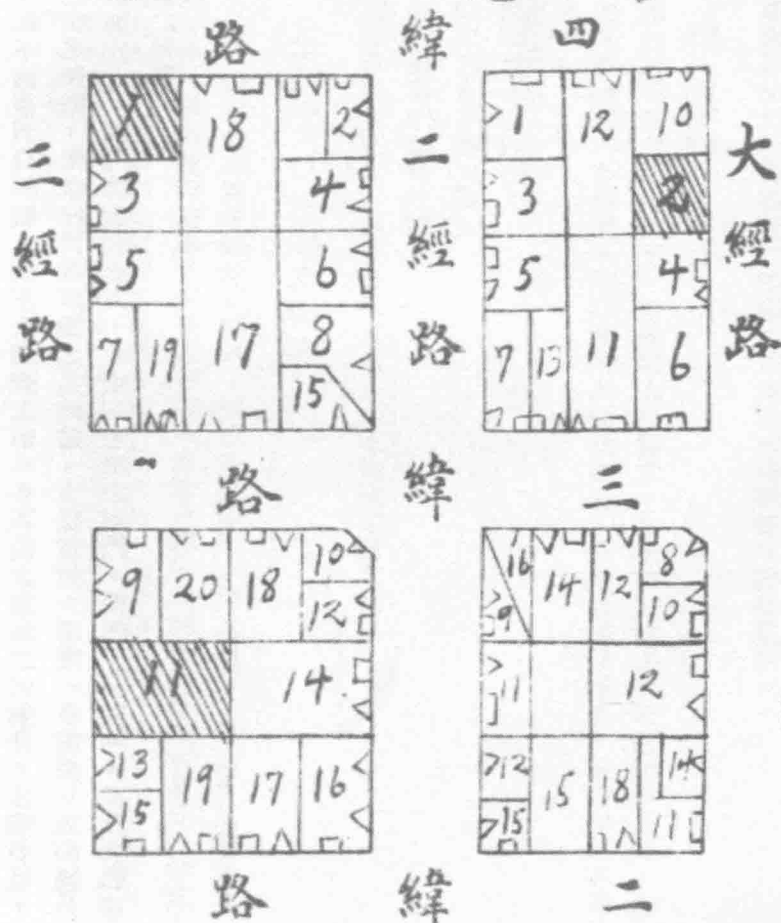 四緯路
三經路
二經路
大經路
1 18 2
3 4
5 6
7 19 17 8
15
1 12 10
3 2
5 4
7 13 11 6
三緯路
9 20 18 10
12
11 14
13 19 17 16
15
16 14 12 8
9 10
11 12
12 15 18 14
15 11
二緯路